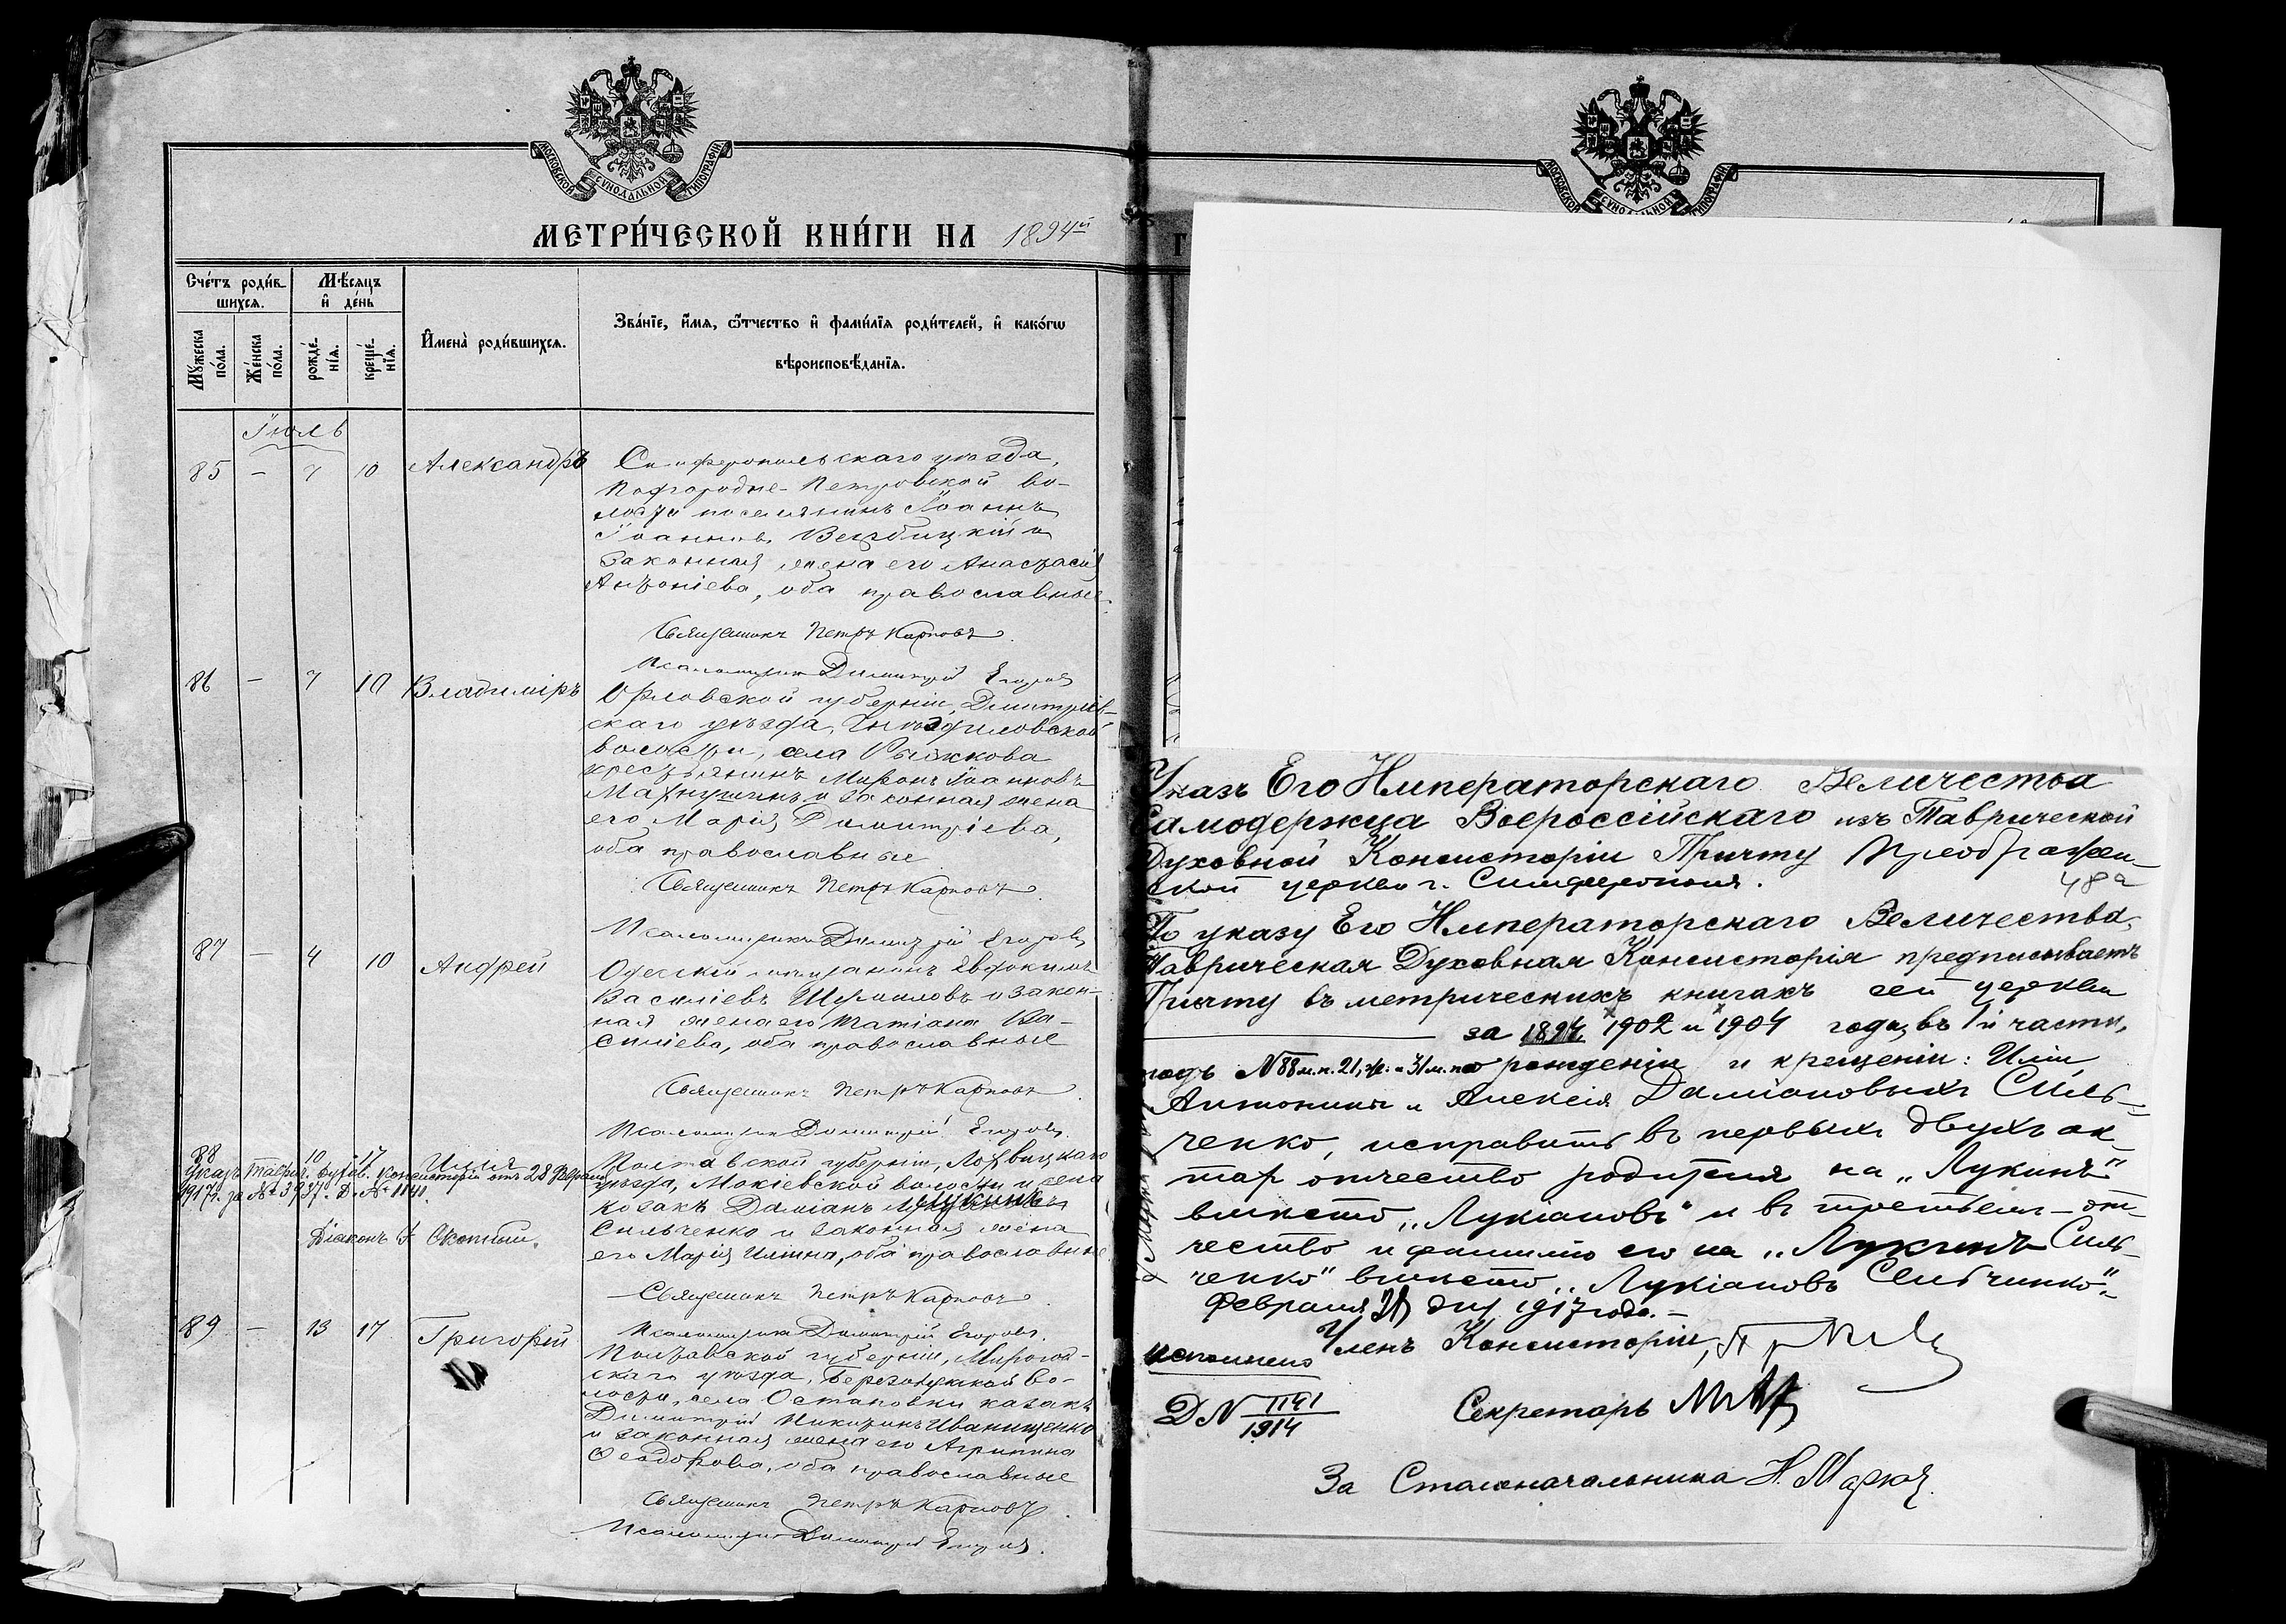 МОСКОВСКОЙ СѴНОДАЛЬНОЙ ТИПОГРАФІИ
МЕТРИ́ЧЕСКОЙ КНИ́ГИ НА 1894й
Сче́тъ роди́в-
шихсѧ.
Мѣ́сѧцъ
и҆ де́нь
Мꙋ́жеска
по́ла.
Же́нска
по́ла.
рожде́-
нїѧ.
креще́-
нїѧ.
И҆мена̀ роди́вшихсѧ.
Зва́нїе, и҆́мѧ, ѻ҆́тчество и҆ фами́лїѧ роди́телей, и҆ како́гѡ
вѣроисповѣ́данїѧ.
Іюль
85 – 7 10 Александръ
Симферопольскаго уѣзда,
Подгородне-Петровской во-
лости поселянинъ Іоаннъ
Іоанновъ Вербицкій и
законная жена его Анастасія
Антоніева, оба православные.
Священникъ Петръ Карповъ.
Псаломщикъ Димитрій Егоровъ
86 – 7 10 Владиміръ
Орловской губерніи, Дмитріев-
скаго уѣзда,
волости, села Рыжкова
крестьянинъ Миронъ Іоанновъ
и законная жена
его Марія Димитріева,
оба православные
Священникъ Петръ Карповъ.
Псаломщикъ Димитрій Егоровъ
87 – 4 10 Андрей
Одесскій мѣщанинъ Евдокимъ
Василіевъ и закон-
ная жена его Татіана Ва-
силіева, оба православные
Священникъ Петръ Карповъ.
Псаломщикъ Димитрій Егоровъ.
88 10 17 Илія
Указъ Таврич. Духов. Консисторіи отъ 28 Февраля
1917 г. за № 3937. Д. № 1141.
Діаконъ
Полтавской губерніи, Лохвицкаго
уѣзда, Мокіевской волости и села
козакъ Даміанъ Лукинъ
Сильченко и законная жена
его Марія Ильина, оба православные
Священникъ Петръ Карповъ.
Псаломщикъ Димитрій Егоровъ.
89 – 13 17 Григорій
Полтавской губерніи, Миргород-
скаго уѣзда, во-
лости, села Остаповки казакъ
Димитрій Никитинъ Иванищенко
и законная жена его Агрипина
Феодорова, оба православные
Священникъ Петръ Карповъ.
Псаломщикъ Димитрій Егоровъ.
МОСКОВСКОЙ СѴНОДАЛЬНОЙ ТИПОГРАФІИ
Указъ Его Императорскаго Величества
Самодержца Всероссійскаго изъ Таврической
Духовной Консисторіи Причту Преображен-
ской церкви г. Симферополя.
По указу Его Императорскаго Величества,
Таврическая Духовная Консисторія предписываетъ
Причту въ метрическихъ книгахъ сей церкви
за 1894, 1902 и 1904 года, въ 1й части,
подъ № 88 м.п. 21, ж. и 31 м. п о рожденіи и крещеніи: Иліи
Антонины и Алексія Даміановыхъ Силь-
ченко, исправить въ первыхъ двухъ ак-
тах отчество родителя на „Лукинъ"
вмѣсто „Лукіановъ" и въ третьемъ – от-
чество и фамилію его на „Лукинъ Силь-
ченко" вмѣсто „Лукіановъ
Февраля 28 дня 1917 года. –
Членъ Консисторіи,
исполнено
Д № 1141
1914
Секретарь
За Столоначальника Н.